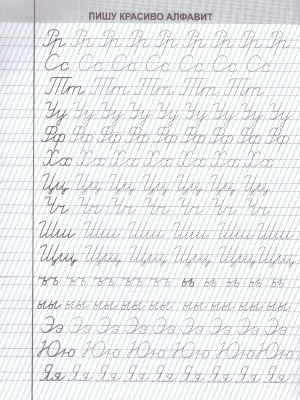 ПИШУ КРАСИВО АЛФАВИТ
Рр Рр Рр Рр Рр Рр Рр Рр Рр
Сс Сс Сс Сс Сс Сс Сс
Тт Тт Тт Тт Тт
Уу Уу Уу Уу Уу Уу Уу Уу Уу
Фф Фф Фф Фф Фф Фф Фф Фф Фф
Хх Хх Хх Хх Хх Хх Хх
Цц Цц Цц Цц Цц Цц Цц
Чч Чч Чч Чч Чч Чч Чч
Шш Шш Шш Шш Шш Шш
Щщ Щщ Щщ Щщ Щщ Щщ
ъъ ъъ ъъ ъъ ъъ ъъ ьь ьь ьь ьь ьь
ыы ыы ыы ыы ыы ыы ыы ыы ыы ыы ыы
Ээ Ээ Ээ Ээ Ээ Ээ Ээ Ээ Ээ
Юю Юю Юю Юю Юю Юю
Яя Яя Яя Яя Яя Яя Яя Яя Яя